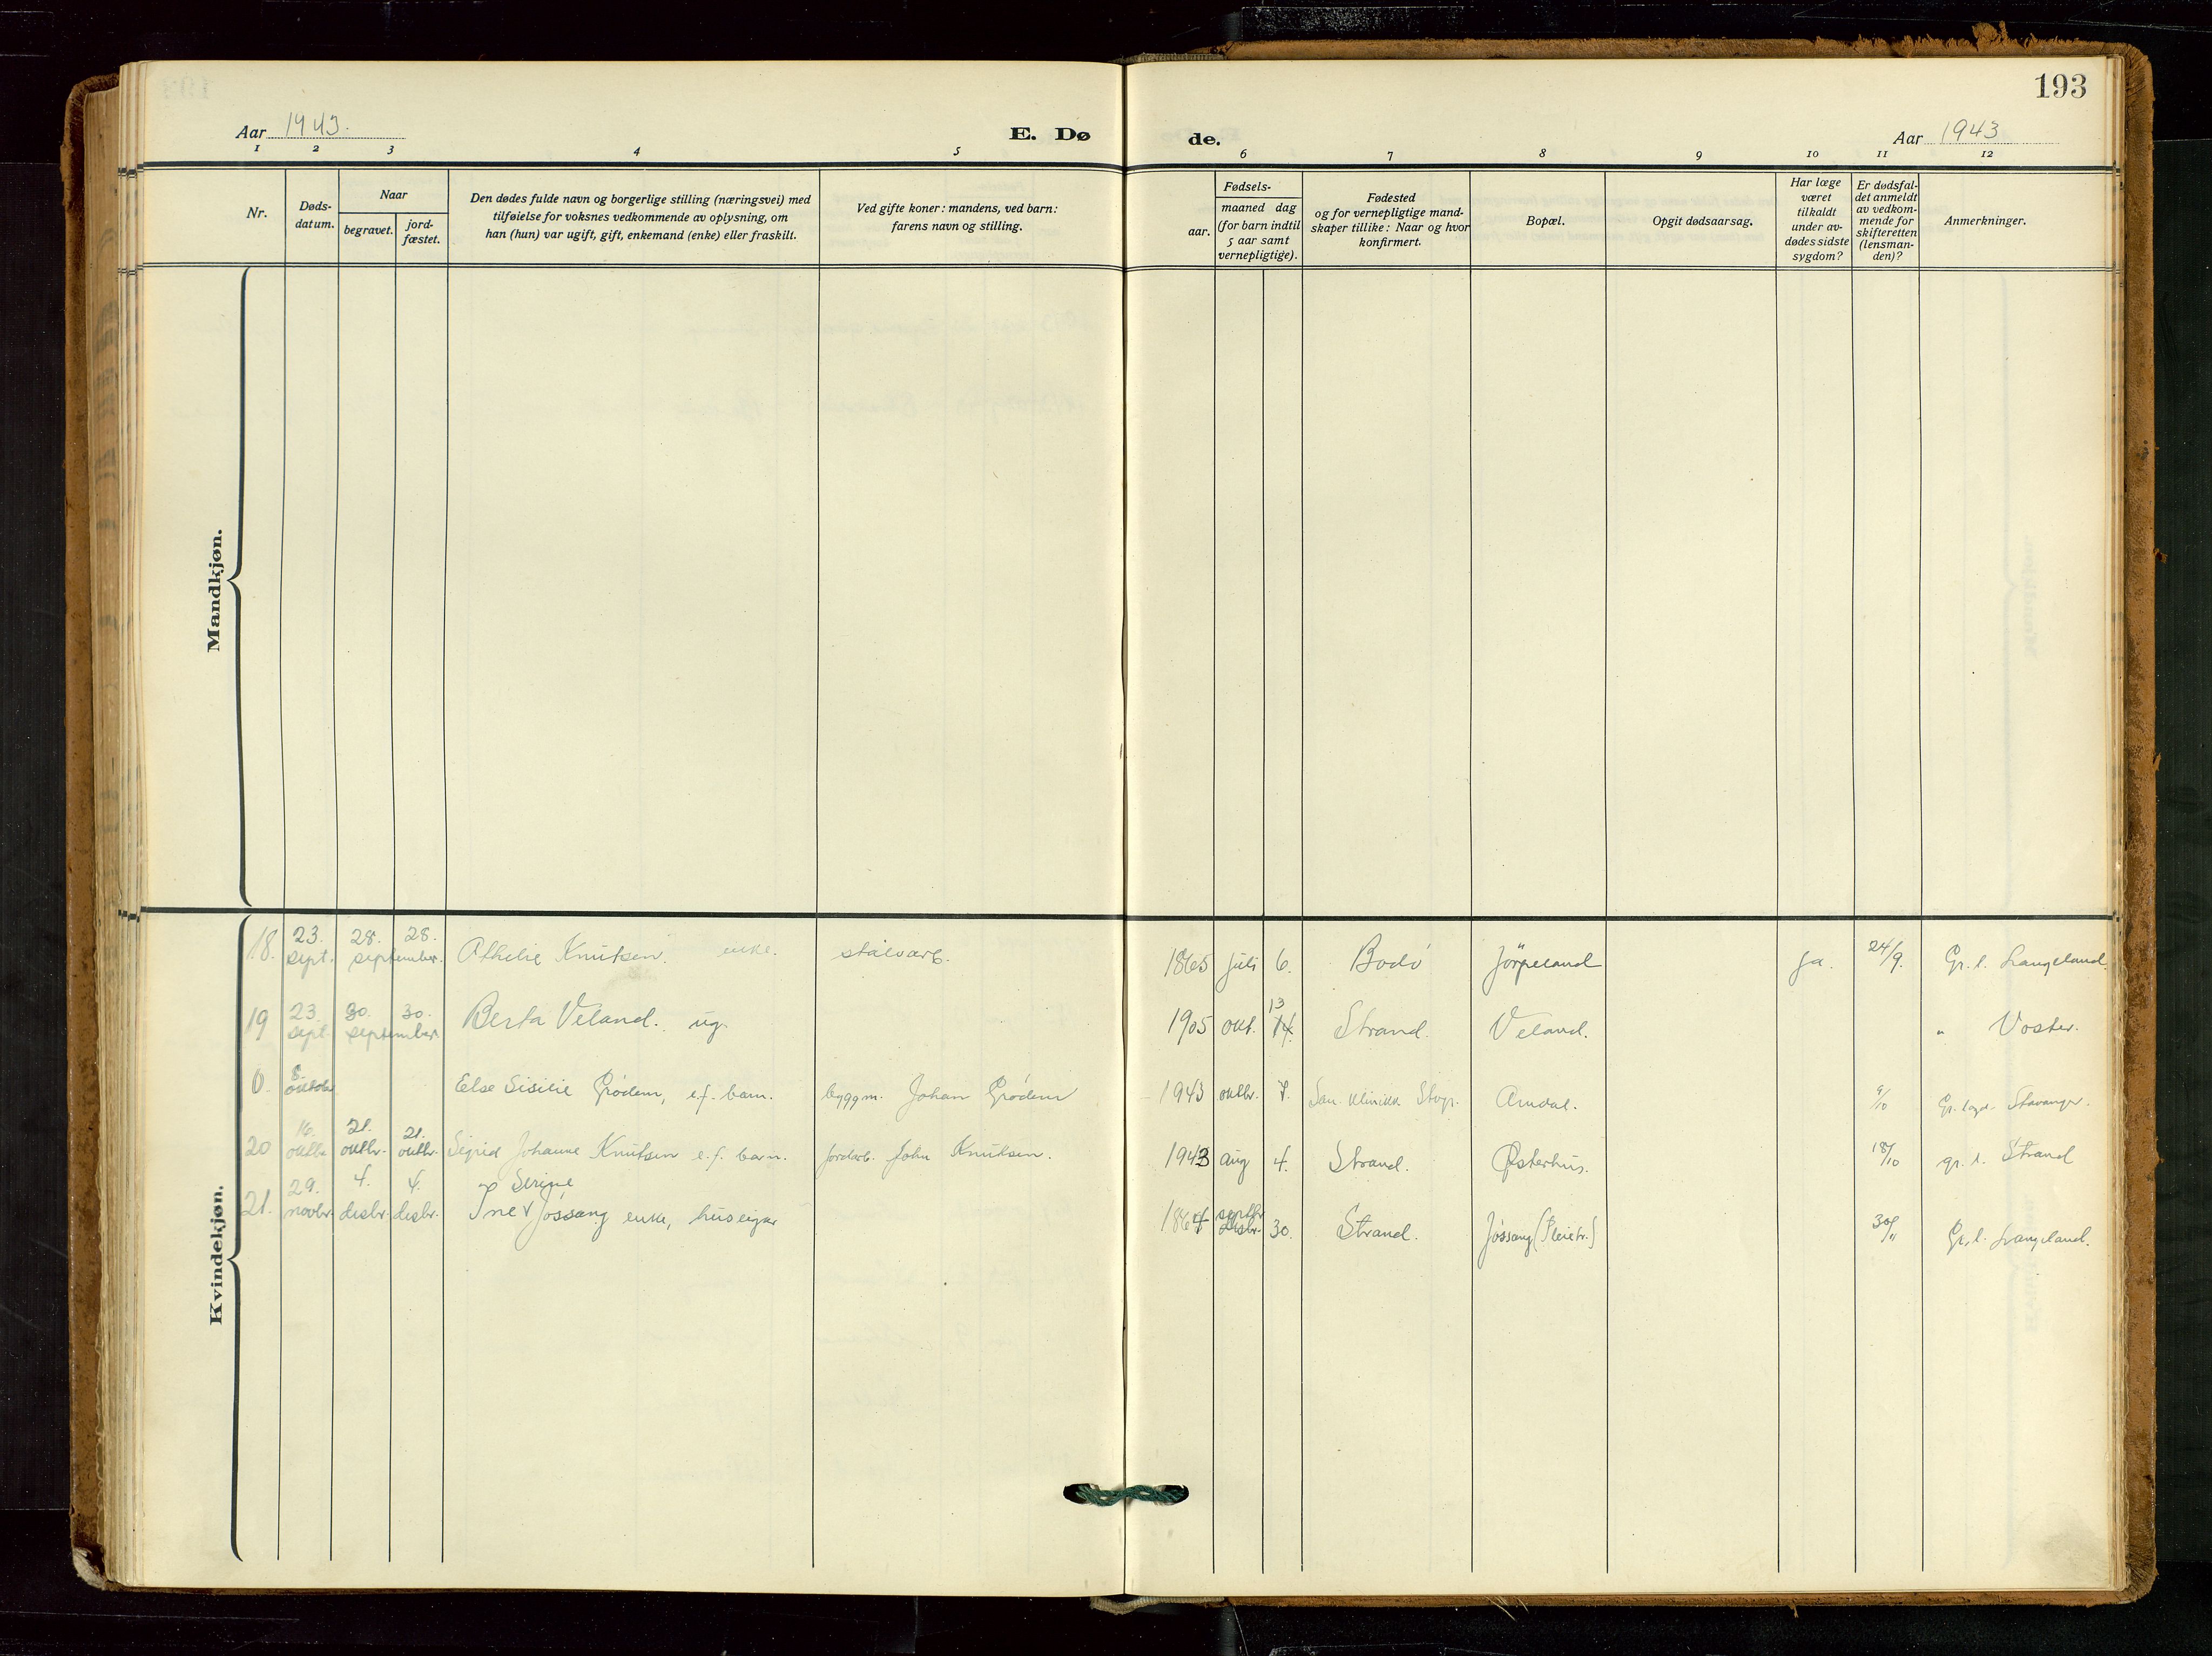 193
Aar 1943.
E. Dø
de.
Aar 1943
1 2 3 4 5 6 7 8 9 10 11 12
Nr.
Døds-
datum.
Naar
begravet.
jord-
fæstet.
Den dødes fulde navn og borgerlige stilling (næringsvei) med
tilføielse for voksnes vedkommende av oplysning, om
han (hun) var ugift, gift, enkemand (enke) eller fraskilt.
Ved gifte koner: mandens, ved barn:
farens navn og stilling.
Fødsels-
aar.
maaned dag
(for barn indtil
5 aar samt
vernepligtige).
Fødested
og for vernepligtige mand-
skaper tillike: Naar og hvor
konfirmert.
Bopæl.
Opgit dødsaarsag.
Har læge
været
tilkaldt
under av-
dødes sidste
sygdom?
Er dødsfal-
det anmeldt
av vedkom-
mende for
skifteretten
(lensman-
den)?
Anmerkninger.
Mandkjøn.
Kvindekjøn.
18. 23. sept. 28. 28. september. Knutsen. enke. stålvarb. 1865 juli 6. Bodø Jörpeland ja. 24/9. Gr. l. Langeland.
19 23. sept. 30. 30. september. Berta Veland. ug. 1905 okt. 13 14. Strand. Veland. " Voster.
0. 8. Else Sisilie Grödem, e.f. barn. byggm. Johan Grödem 1943 oktbr. 7. San. klinikk Stvgr. Amdal. 9/10 Stavanger.
20 16. oktbr. 21. oktbr. 21. oktbr. Sigrid Johanne Knutsen e.f. barn. jordarb. John Knutsen. 1943 aug 4. Strand. Østerhus. 18/10 gr. l. Strand
21. 29. novbr. 4. desbr. 4. desbr. Serine
Ine v Jössang enke, huseigar 1864 septbr desbr. 30. Strand. Jössang (Pleieh.) 30/11 Gr. l. Langeland.